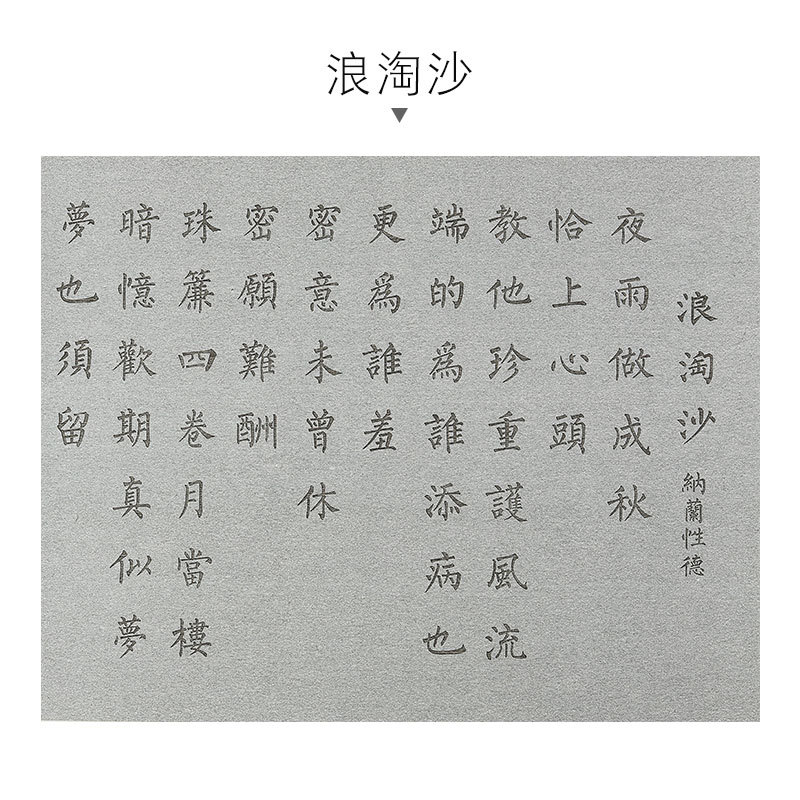 浪淘沙
浪淘沙 納蘭性德
夜雨做成秋
恰上心頭
教他珍重護風流
端的為誰添病也
更為誰羞
密意未曾休
密願難酬
珠簾四卷月當樓
暗憶歡期真似夢
夢也須留